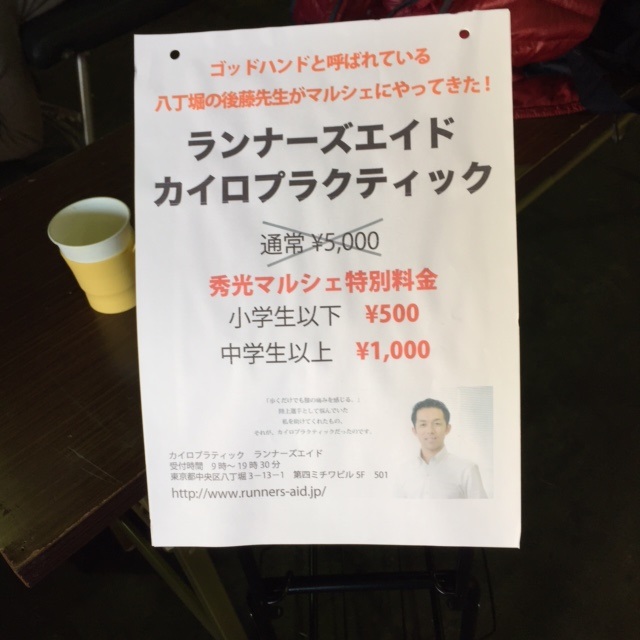 ゴッドハンドと呼ばれている
八丁堀の後藤先生がマルシェにやってきた！
ランナーズエイド
カイロプラクティック
通常 ¥5,000
秀光マルシェ特別料金
小学生以下 ¥500
中学生以上 ¥1,000
「歩くだけでも膝の痛みを感じる。」
陸上選手として悩んでいた
私を助けてくれたもの。
それが、カイロプラクティックだったのです。
カイロプラティック ランナーズエイド
受付時間 9時〜19時30分
東京都中央区八丁堀3−13−1 第四ミチワビル5F 501
http://www.runners-aid.jp/